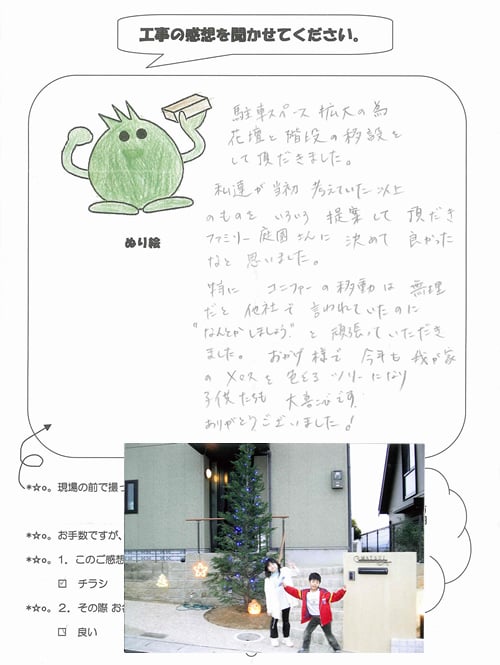 工事の感想を聞かせてください。
駐車スペース拡大の為
花壇と階段の移設を
して頂だきました。
私達が当初考えていた以上
のものをいろいろ提案して頂だき
ファミリー庭園さんに決めて良かった
なと思いました。
特にコニファーの移動は無理
だと他社で言われていたのに
"なんとかしましょう"と頑張っていただき
ました。おかげ様で今年も我が家
のXマスを色どるツリーになり
子供たちも大喜びです。
ありがとうございました!
ぬり絵
*☆o。現場の前で撮っ
*☆o。お手数ですが、
*☆o。1．このご感想
☑ チラシ
*☆o。2．その際 お
良い